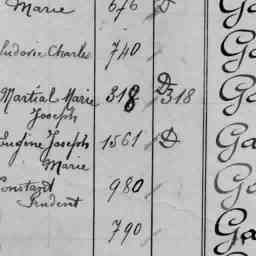 Marie 676 D Ga
Ludovic Charles 740 Ga
Martial Marie 318 D 318 Ga
Joseph
Eugène Joseph 1561 D Ga
Marie
Constant 980 Ga
Prudent
790 Ga